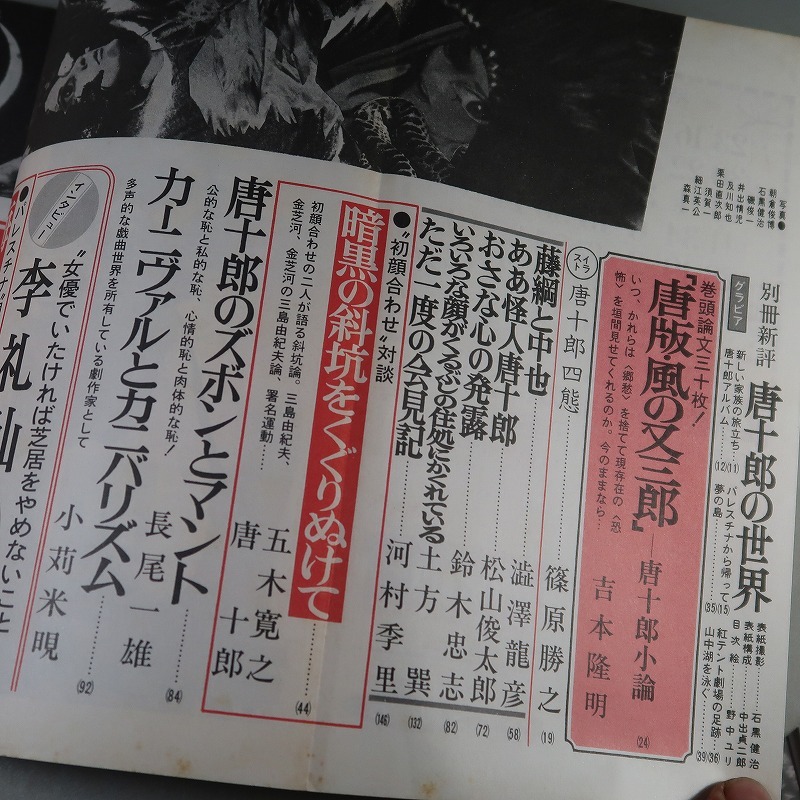 別冊新評 唐十郎の世界
グラビア
新しい家族の旅立ち (11)
唐十郎アルバム (12)
パレスチナから帰って (15)
夢の島 (35)
紅テント劇場の足跡 (36)
山中湖を泳ぐ (39)
表紙撮影 石黒健治
表紙構成 中出貞二郎
目次絵 野中ユリ
写真●
朝倉俊博
石黒健治
磯俊一
井出情児
及川知也
栗田直次郎
須賀一
細江英公
森真一
巻頭論文三十枚!
『唐版・風の又三郎』―唐十郎小論 吉本隆明 (24)
いつ、かれらは〈郷愁〉を捨てて現存在の〈恐
怖〉を垣間見せてくれるのか。今のままなら…
イラスト 唐十郎四態 篠原勝之 (19)
藤綱と中也 澁澤龍彦 (58)
ああ怪人唐十郎 松山俊太郎 (72)
おさな心の発露 鈴木忠志 (82)
いろいろな顔がくるぶしの住処にかくれている 土方巽 (132)
ただ一度の会見記 河村季里 (146)
●"初顔合わせ"対談
暗黒の斜坑をくぐりぬけて 五木寛之 唐十郎 (44)
初顔合わせの二人が語る斜坑論。三島由紀夫、
金芝河、金芝河の三島由紀夫論、署名運動……
唐十郎のズボンとマント 長尾一雄 (84)
公的な恥と私的な恥、心情的恥と肉体的な恥!
カーニヴァルとカニバリズム 小苅米晛 (92)
多声的な戯曲世界を所有している劇作家として
インタビュー
"女優でいたければ芝居をやめないこと
李礼仙
●パレスチナ